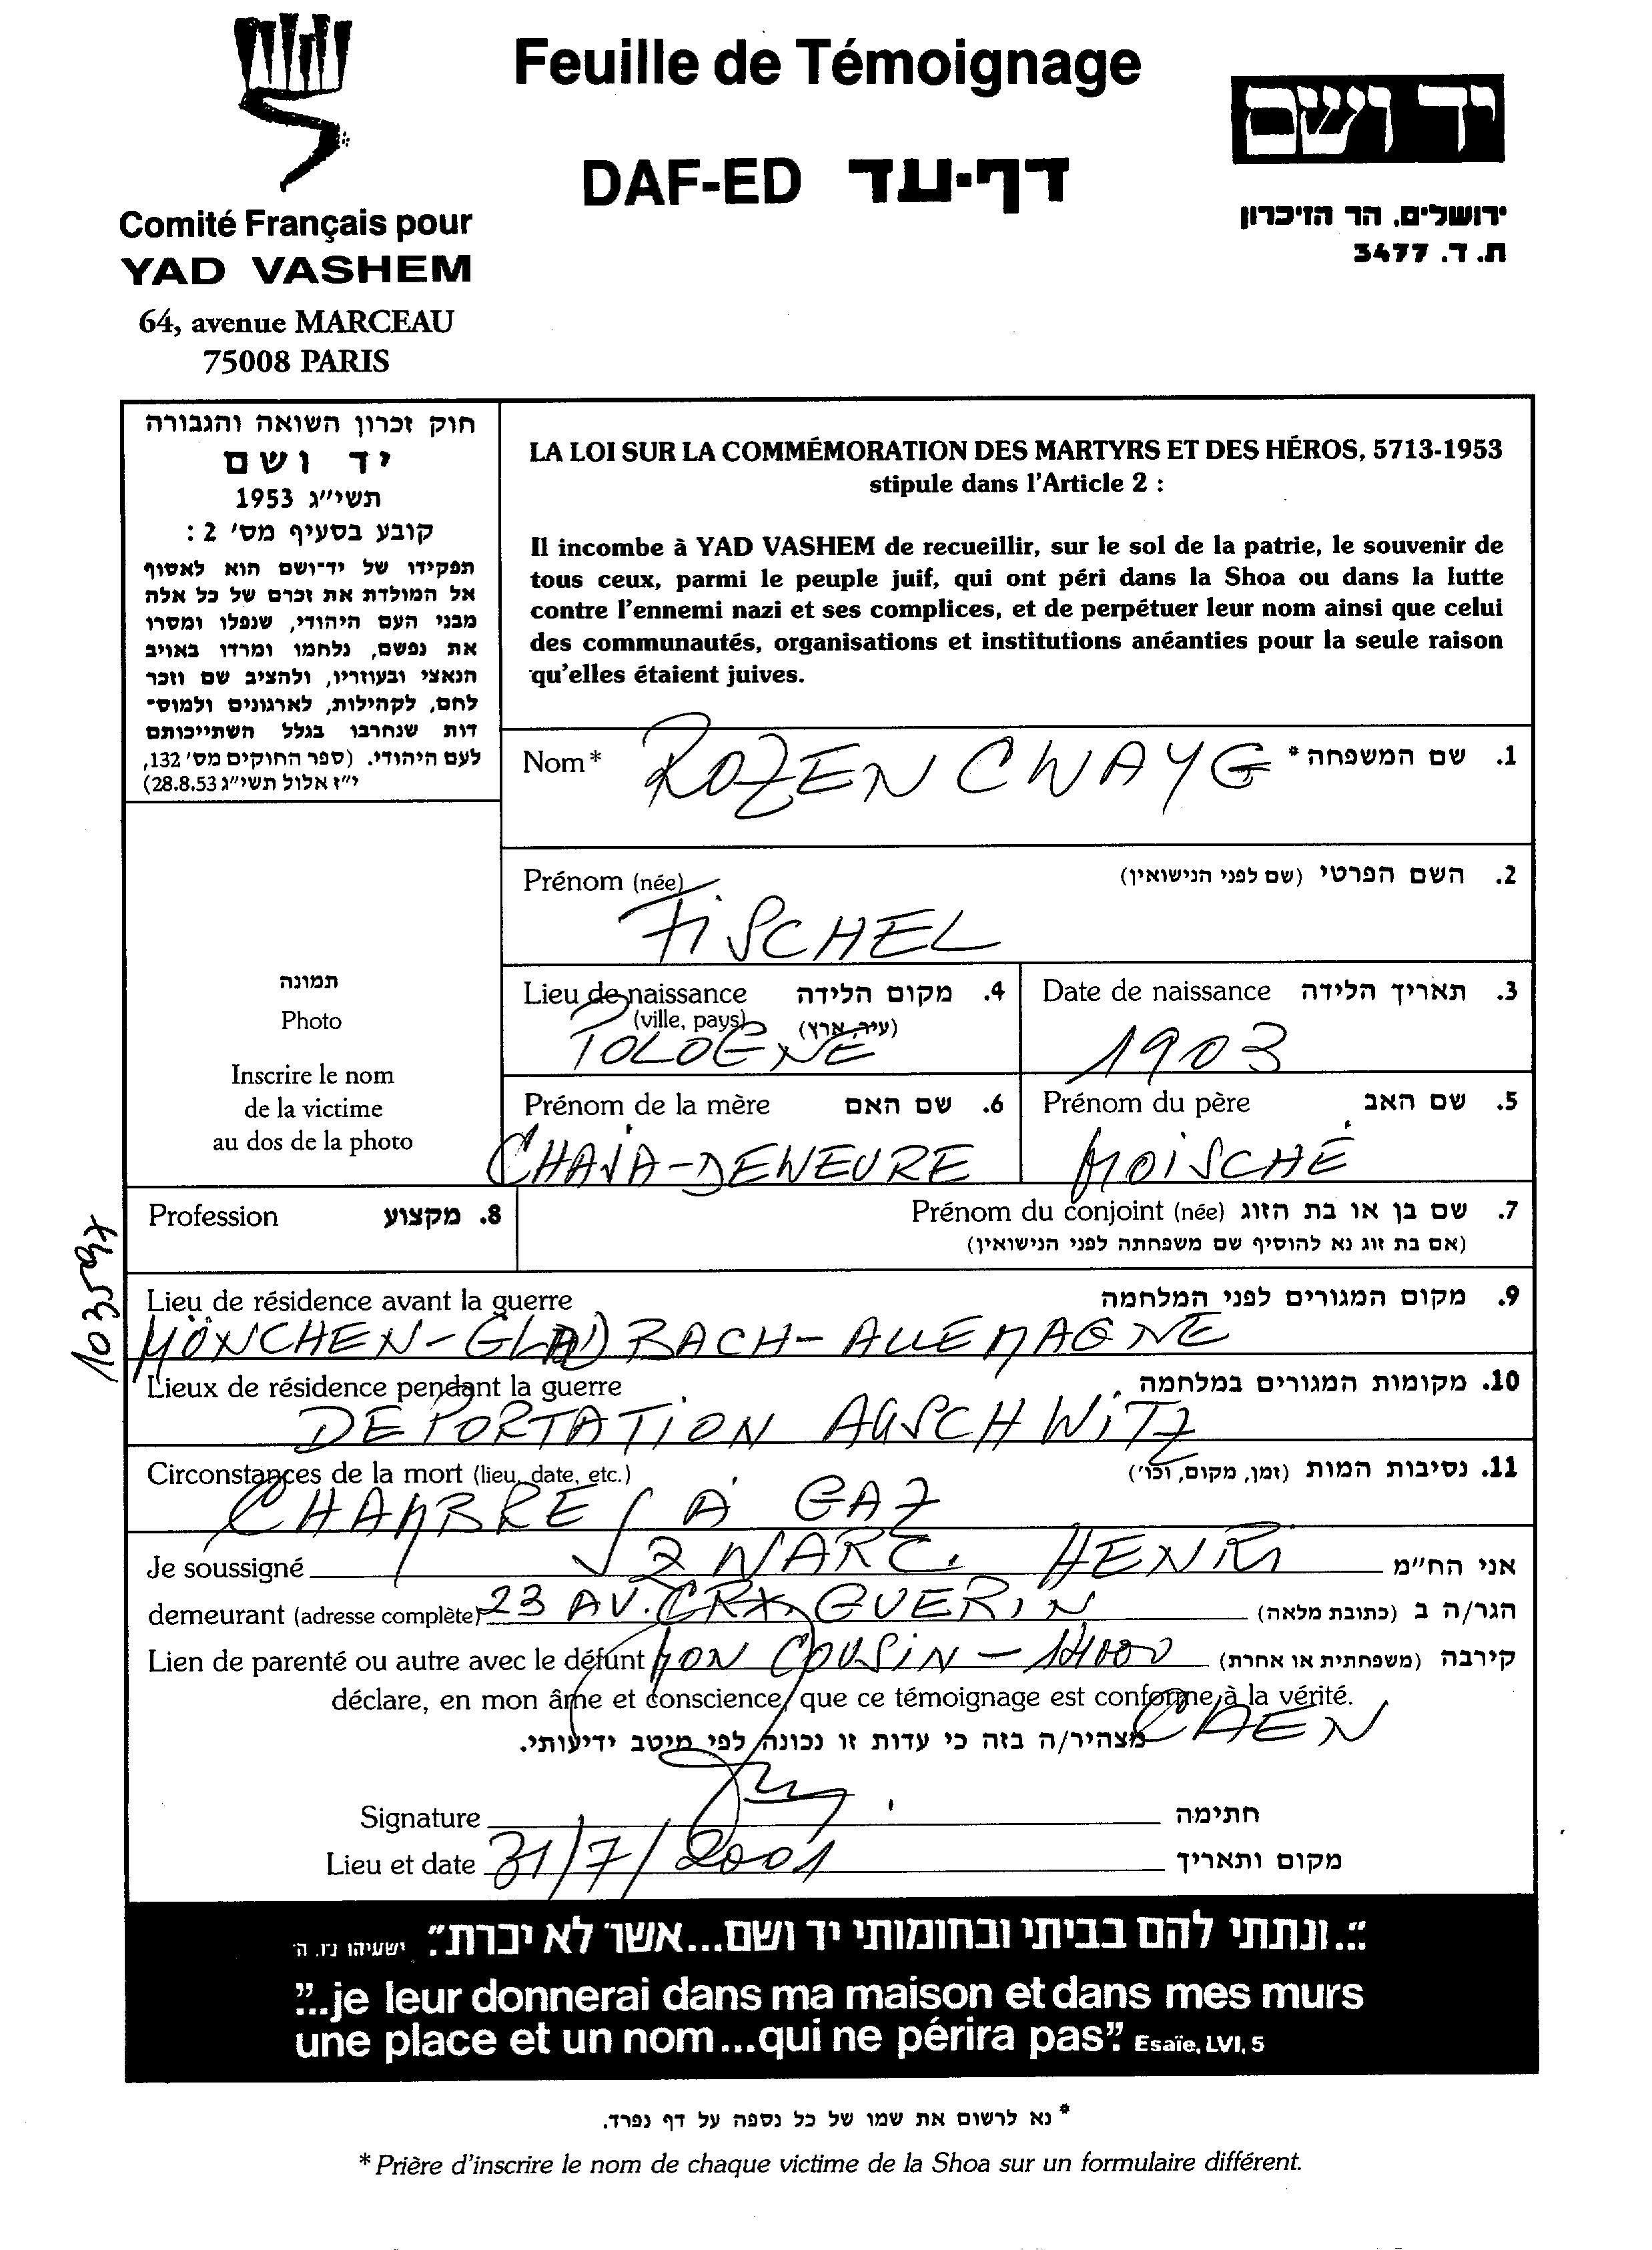 Feuille de Témoignage
DAF-ED דף-עד
Comité Français pour
YAD VASHEM
64, avenue MARCEAU
75008 PARIS
יד ושם
ירושלים, הר הזיכרון
ת. ד. 3477
חוק זכרון השואה והגבורה
יד ושם
תשי״ג 1953
קובע בסעיף מס׳ 2 :
תפקידו של יד־ושם הוא לאסוף
אל המולדת את זכרם של כל אלה
מבני העם היהודי, שנפלו ומסרו
את נפשם, נלחמו ומרדו באויב
הנאצי ובעוזריו, ולהציב שם וזכר
להם, לקהילות, לארגונים ולמוס־
דות שנחרבו בגלל השתייכותם
לעם היהודי. (ספר החוקים מס׳ 132,
י״ז אלול תשי״ג 28.8.53)
LA LOI SUR LA COMMÉMORATION DES MARTYRS ET DES HÉROS, 5713-1953
stipule dans l'Article 2 :
Il incombe à YAD VASHEM de recueillir, sur le sol de la patrie, le souvenir de
tous ceux, parmi le peuple juif, qui ont péri dans la Shoa ou dans la lutte
contre l'ennemi nazi et ses complices, et de perpétuer leur nom ainsi que celui
des communautés, organisations et institutions anéanties pour la seule raison
qu'elles étaient juives.
Nom* ROZENCWAYG 1. שם המשפחה*
Prénom (née) 2. השם הפרטי (שם לפני הנישואין)
FISCHEL
תמונה
Photo
Inscrire le nom
de la victime
au dos de la photo
Lieu de naissance 4. מקום הלידה
(ville, pays) (עיר, ארץ)
POLOGNE
Date de naissance 3. תאריך הלידה
1903
Prénom de la mère 6. שם האם
CHAJA-DEWEURE
Prénom du père 5. שם האב
MOISCHÉ
Profession 8. מקצוע
Prénom du conjoint (née) 7. שם בן או בת הזוג
(אם בת זוג נא להוסיף שם משפחתה לפני הנישואין)
103597
Lieu de résidence avant la guerre 9. מקום המגורים לפני המלחמה
MÖNCHEN-GLADBACH-ALLEMAGNE
Lieux de résidence pendant la guerre 10. מקומות המגורים במלחמה
DEPORTATION AUSCHWITZ
Circonstances de la mort (lieu, date, etc.) 11. נסיבות המות (זמן, מקום, וכו׳)
CHAMBRE À GAZ
Je soussigné SZWARC HENRI אני הח״מ
demeurant (adresse complète) 23 AV. CRX GUERIN הגר/ה ב (כתובת מלאה)
Lien de parenté ou autre avec le défunt MON COUSIN - 14000 קירבה (משפחתית או אחרת)
déclare, en mon âme et conscience, que ce témoignage est conforme à la vérité.
CAEN
מצהיר/ה בזה כי עדות זו נכונה לפי מיטב ידיעותי.
Signature חתימה
Lieu et date 31/7/2001 מקום ותאריך
״...ונתתי להם בביתי ובחומותי יד ושם...אשר לא יכרת״. ישעיהו נ״ו, ה׳
"...je leur donnerai dans ma maison et dans mes murs
une place et un nom...qui ne périra pas". Esaïe, LVI, 5
* נא לרשום את שמו של כל נספה על דף נפרד.
* Prière d'inscrire le nom de chaque victime de la Shoa sur un formulaire différent.